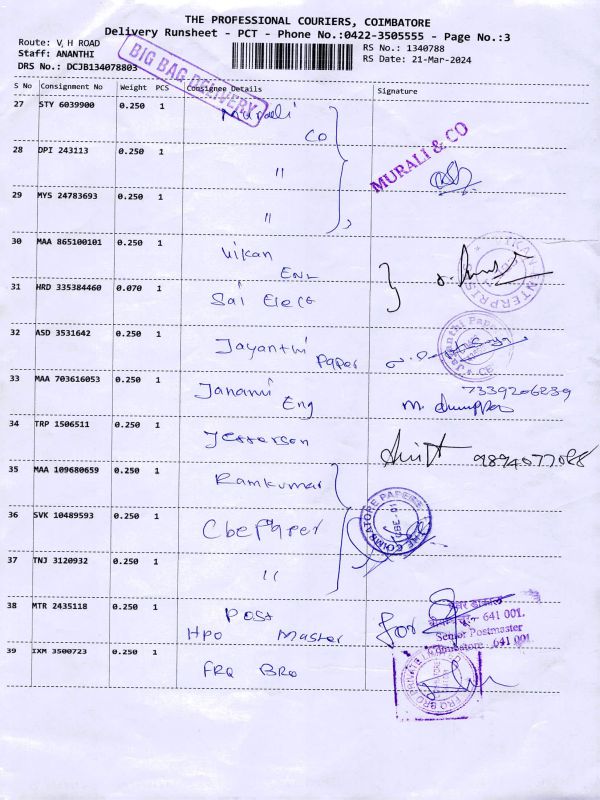 THE PROFESSIONAL COURIERS, COIMBATORE
Delivery Runsheet - PCT - Phone No.:0422-3505555 - Page No.:3
Route: V H ROAD
RS No.: 1340788
Staff: ANANTHI
RS Date: 21-Mar-2024
DRS No.: DCJB134078803
BIG BAG DELIVERY
S No Consignment No Weight PCS Consignee Details Signature
27 STY 6039900 0.250 1 Murali
CO
MURALI & CO
28 DPI 243113 0.250 1 "
29 MYS 24783693 0.250 1 "
30 MAA 865100101 0.250 1 Vikan
Ent
31 HRD 335384460 0.070 1 Sai Elect
32 ASD 3531642 0.250 1 Jayanthi
Paper
Jayanthi Paper
33 MAA 703616053 0.250 1 Janani
Eng
7339206239
34 TRP 1506511 0.250 1 Jefferson
9894077088
35 MAA 109680659 0.250 1 Ramkumar
36 SVK 10489593 0.250 1 Cbe Paper
THE COIMBATORE PAPERS
CBE-01
37 TNJ 3120932 0.250 1 "
38 MTR 2435118 0.250 1 Post
HPO Master
for
641 001.
Senior Postmaster
Coimbatore 641 001
39 IXM 3500723 0.250 1 FRQ Bro